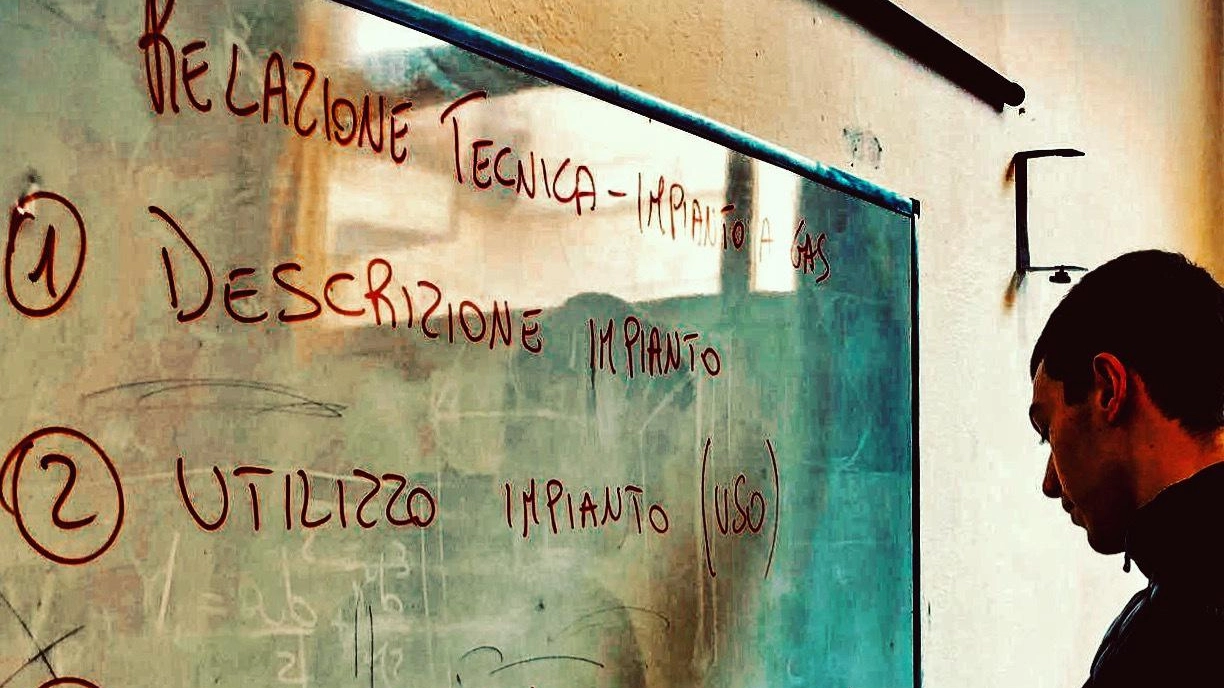 RELAZIONE TECNICA - IMPIANTO A GAS
1 DESCRIZIONE IMPIANTO
2 UTILIZZO IMPIANTO (USO)